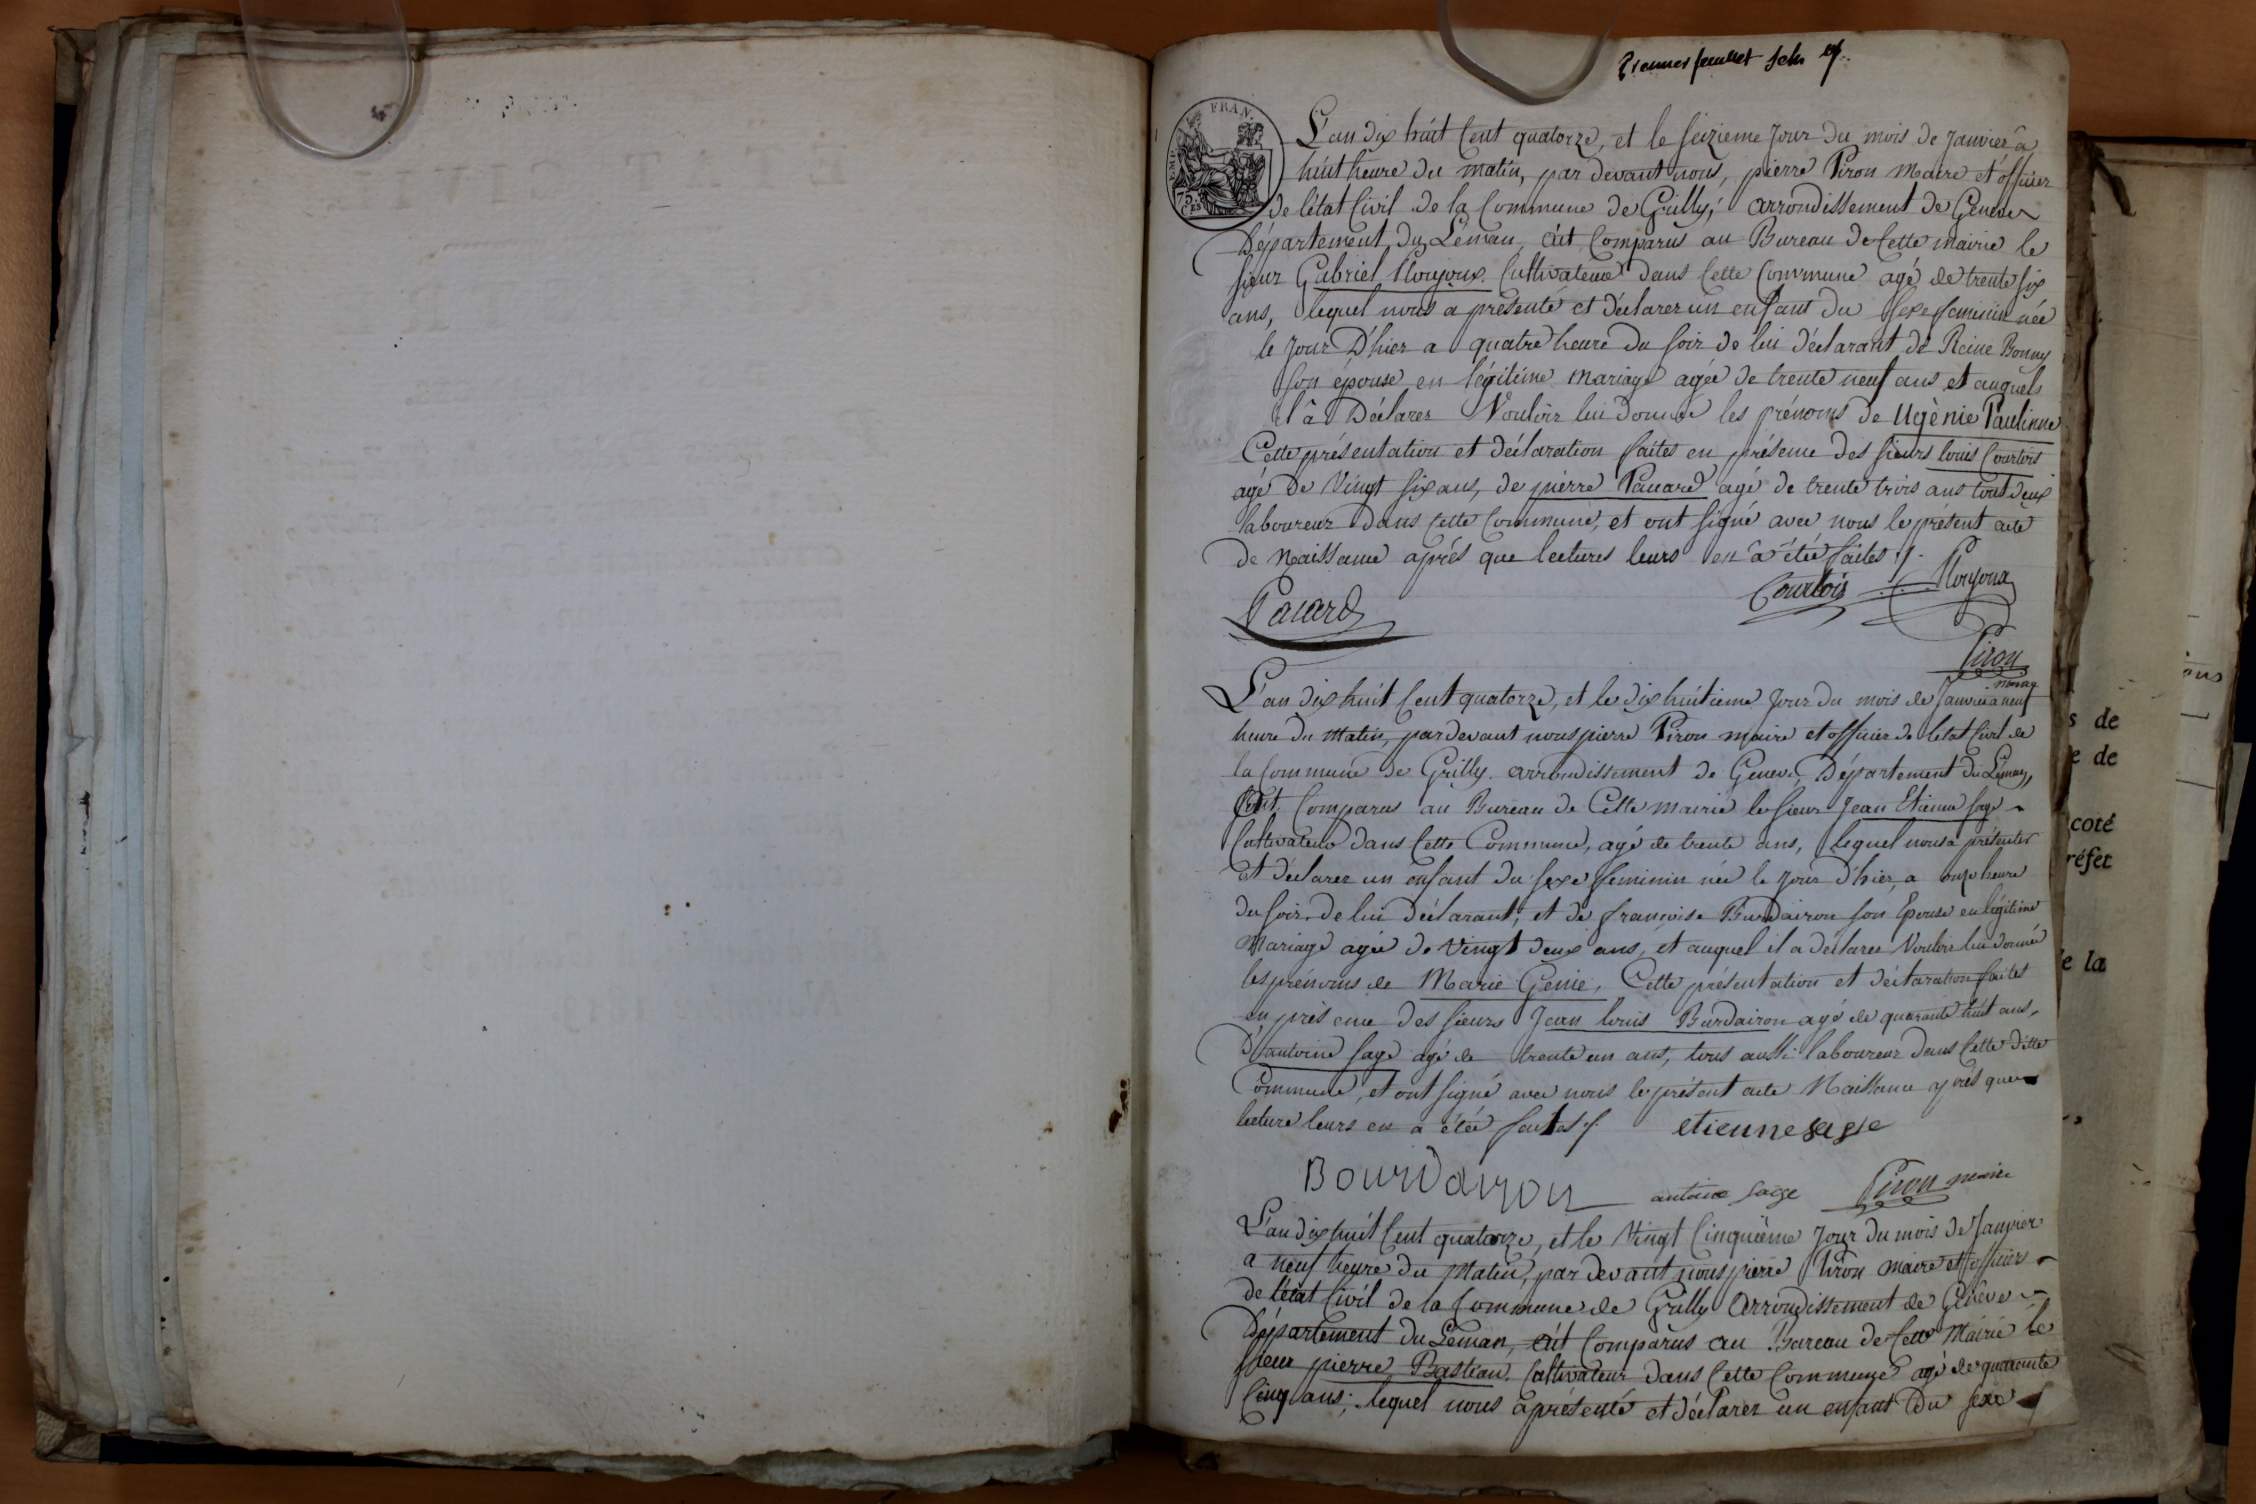 premier feuillet
FRAN.
L'an dix huit Cent quatorze, et le seizieme Jour du mois de Janvier à
huit heure du matin, par devant nous, pierre Piron Maire et officier
de l'état Civil de la Commune de Grilly, arrondissement de Geneve
Département du Léman, est Comparus au Bureau de Cette mairie le
sieur Gabriel Cultivateur dans Cette Commune agé de trente six
ans, lequel nous a presenté et déclarer un enfant du sexe feminin née
le Jour D'hier a quatre heure du soir de lui déclarant de Reine Bonny
son épouse en légitime mariage agée de trente neuf ans et auquels
il à Déclarer Vouloir lui donné les prénoms de Ugènie Paulinne
Cette présentation et déclaration faites en présence des sieurs louis Courtois
agé De Vingt six ans, de pierre Panard agé de trente trois ans tout deux
laboureur dans Cette Commune, et ont signé avec nous le présent acte
de Naissance après que lectures leurs en à étée faites ./.
Courtois
Piron
L'an dix huit Cent quatorze, et le dix huitieme Jour du mois de Janvier à neuf
heure du Matin, par devant nous pierre Piron maire et officier de l'etat Civil de
la Commune de Grilly arrondissement de Geneve, Département du Leman,
est Comparus au Bureau de Cette mairie le sieur Jean Etienne sage
Cultivateur dans Cette Commune, agé de trente ans, lequel nous à présenter
et déclarer un enfant du sexe feminin née le Jour D'hier, a onze heure
du soir de lui déclarant, et de françoise Burdairon son Epouse en légitime
Mariage agée de Vingt deux ans, et auquel il a déclarer Vouloir lui donné
les prénoms de Marie Genie, Cette présentation et déclaration faites
en présence des sieurs Jean louis Burdairon agé de quarante huit ans,
D'antoine sage agé de trente un ans, tous aussi laboureur dans Cette ditte
Commune, et ont signé avec nous le présent acte Naissance après que
lecture leurs en a étée faites ./. etienne sage
BourDayron antoine saige Piron maire
L'an dix huit Cent quatorze, et le Vingt Cinquième Jour du mois de Janvier
a neuf heure du Matin, par devant nous pierre Piron maire et officier
de l'état Civil de la Commune de Grilly Arrondissement de Genève
Département du Léman, est Comparus au Bureau de Cette Mairie le
sieur pierre Bastian, Cultivateur dans Cette Commune agé de quarante
Cinq ans; lequel nous à présenté et déclarer un enfant du sexe
s de
e de
coté
réfet
e la